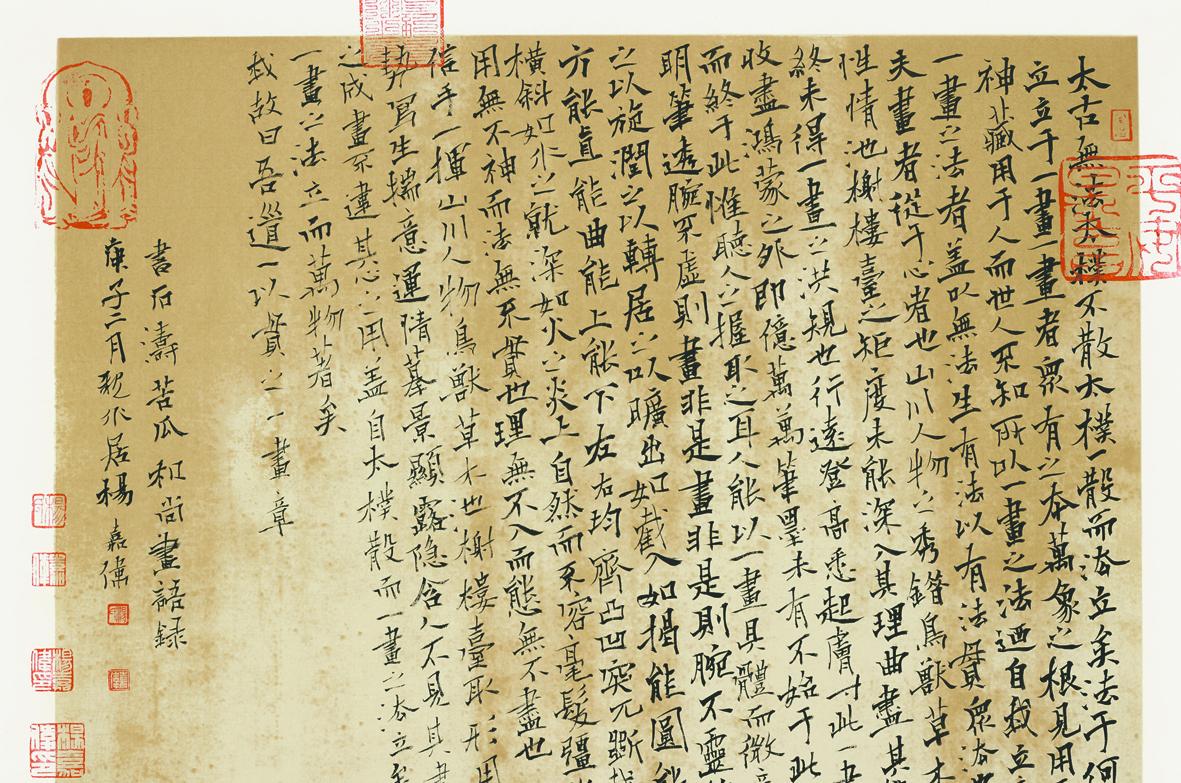 太古無法太樸不散太樸一散而法立矣法于何
立立于一畫一畫者衆有之本萬象之根見用
神藏用于人而世人不知所以一畫之法迺自我立
一畫之法者蓋以無法生有法以有法貫衆法
夫畫者從于心者也山川人物之秀錯鳥獸草木
性情池榭樓臺之矩度未能深入其理曲盡其
終未得一畫之洪規也行遠登高悉起膚寸此一畫
收盡鴻蒙之外即億萬萬筆墨未有不始于此
而終于此惟聽人之握取之耳人能以一畫具體而微意
明筆透腕不虛則畫非是畫非是則腕不靈
之以旋潤之以轉居之以曠出如截入如揭能圓能
方能直能曲能上能下左右均齊凸凹突兀斷截
橫斜如水之就深如火之炎上自然而不容毫髮彊
用無不神而法無不貫也理無不入而態無不盡也
信手一揮山川人物鳥獸草木池榭樓臺取形用
勢寫生揣意運情摹景顯露隐含人不見其畫
之成畫不違其心之用蓋自太樸散而一畫之法立
一畫之法立而萬物著矣
我故曰吾道一以貫之一畫章
書石濤苦瓜和尚畫語録
庚子二月觀水居楊嘉偉
楊嘉偉印
楊嘉偉印